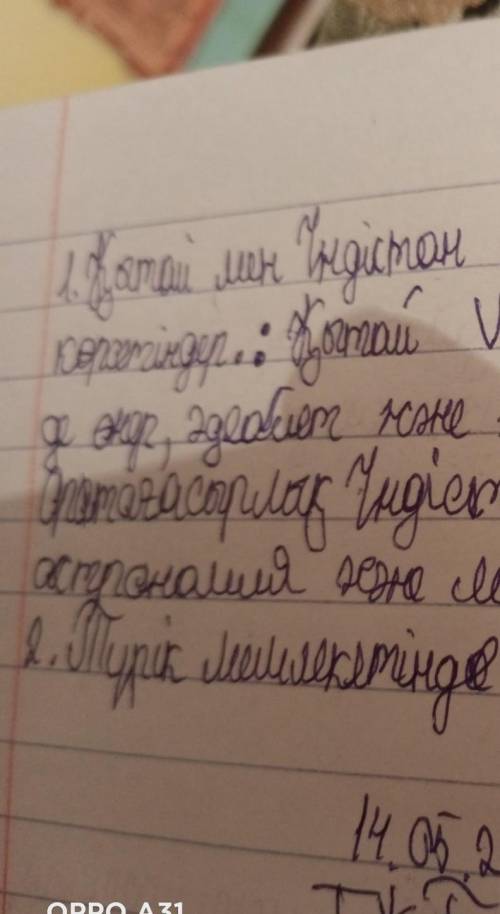 1. Қытай мен Үндістан
көрсетіңдер.: Қытай V
де өнер, әдебиет және
Ортағасырлық Үндіст
астрономия және м
2. Түрік мемлекетінде
14.05.2
OPPO A31